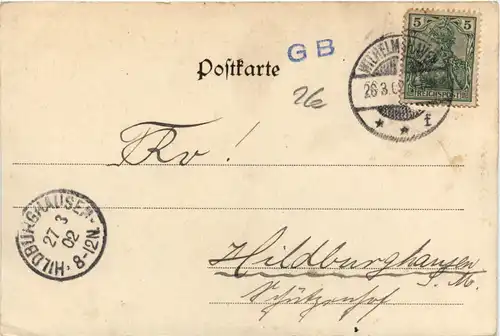 GB
Postkarte
26
5
REICHSPOST
WILHELMSHAVEN
26.3.02
* * f
Frv!
HILDBURGHAUSEN
27
3
02
8-12N.
Hildburghausen
S. M.
Schützenhof